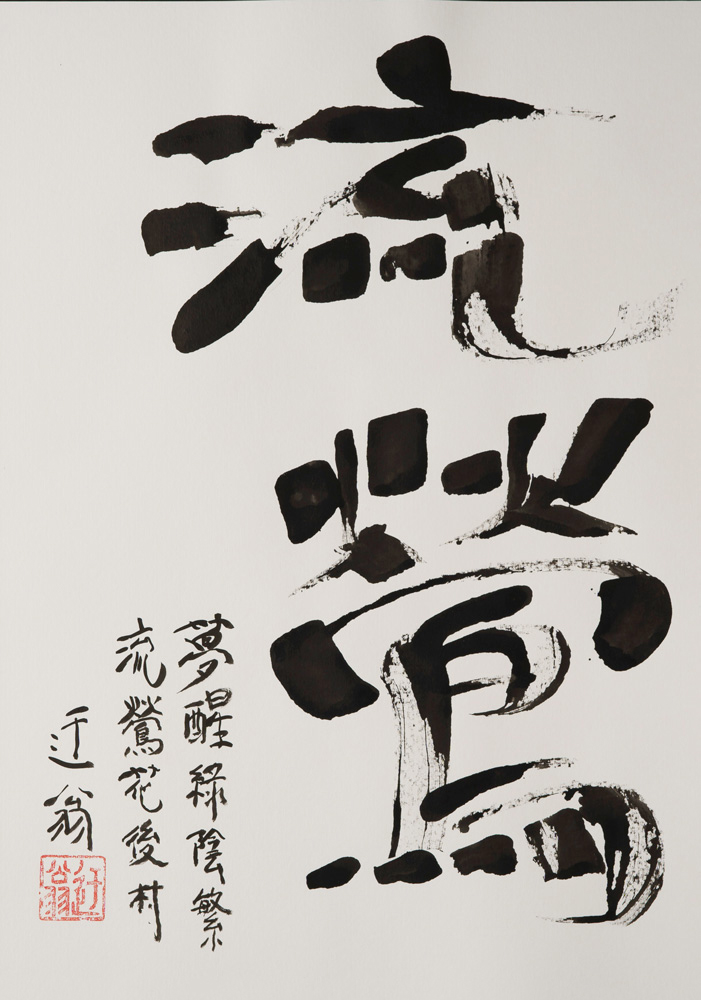 流鶯
夢醒緑陰繁
流鶯花後村
迂翁
迂翁